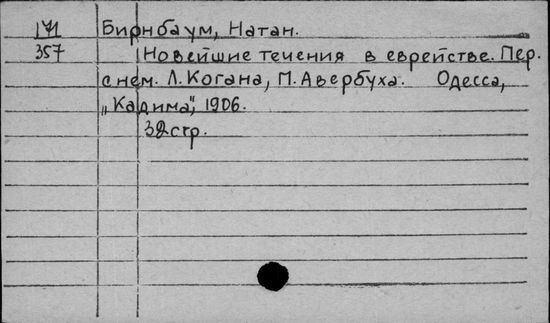 171 Бирнбаум, Натан.
357 Новейшие течения в еврействе. Пер.
с нем. Л. Когана, П. Авербуха. Одесса,
„Кадима", 1906.
32 стр.